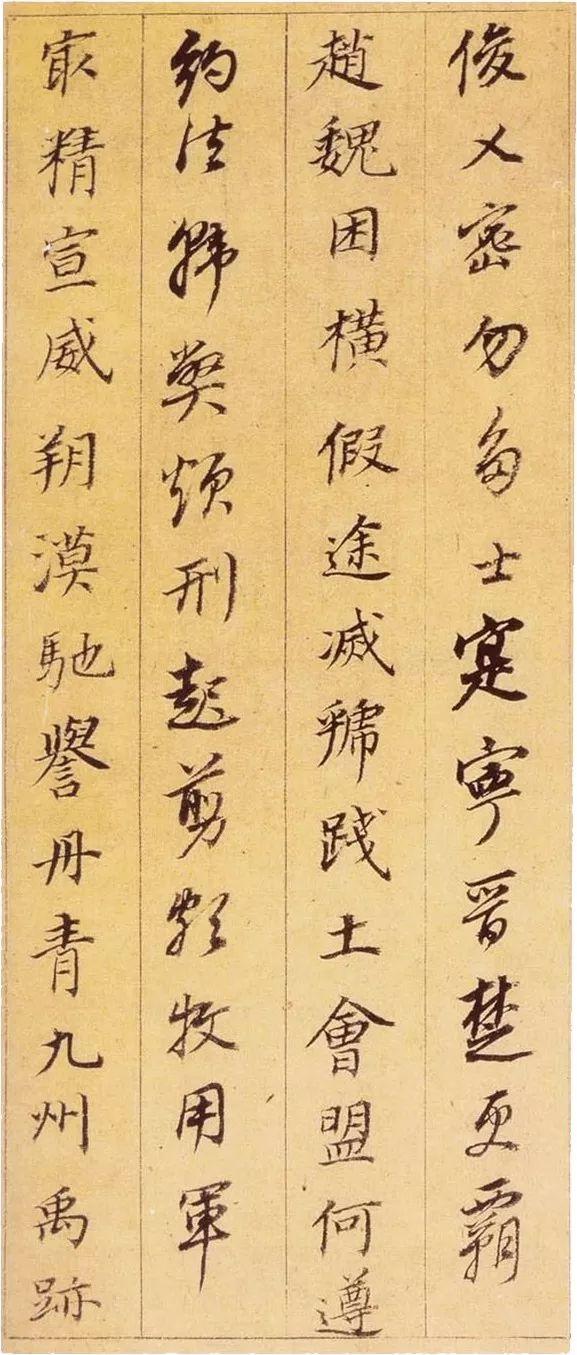 俊乂密勿多士寔寧晉楚更霸
趙魏困橫假途滅虢踐土會盟何遵
約法韓弊煩刑起翦頗牧用軍
最精宣威沙漠馳譽丹青九州禹跡